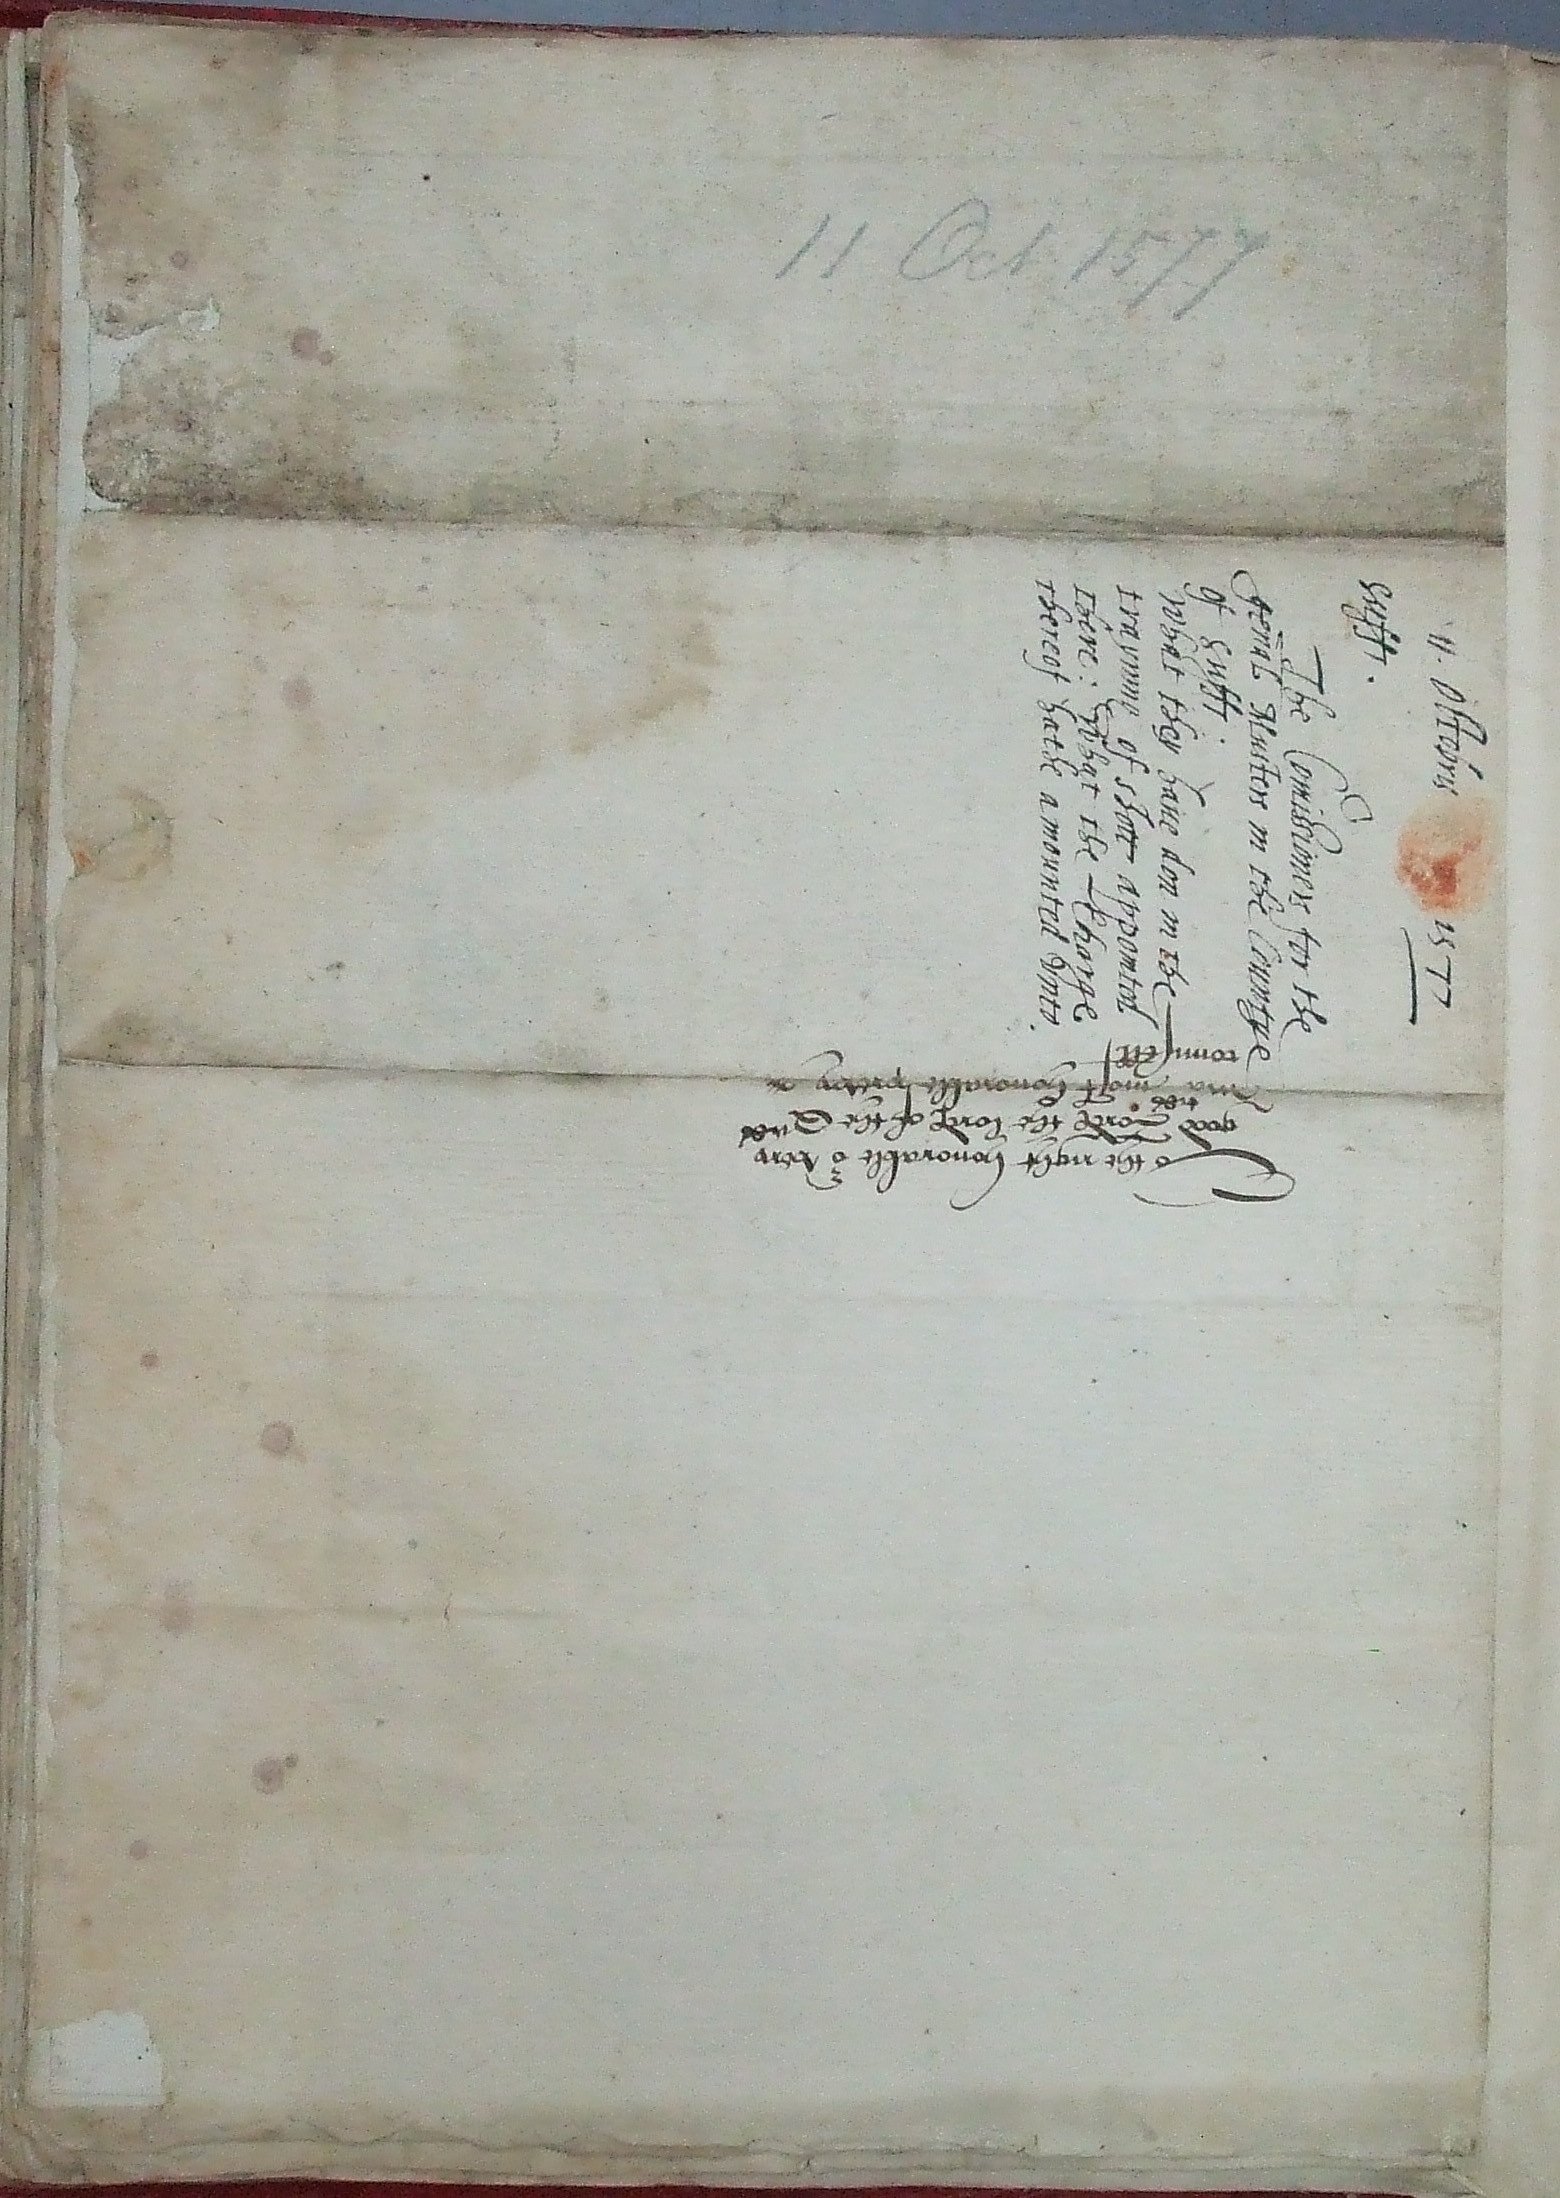 11 Oct 1577
11. Octobris 1577
Suff.
The Comissioners for the
gen̄all Musters in the Countye
of Suff.
What they haue don in the
trayning of shott appointed
there: What the Charge
thereof hathe amounted vnto.
To the right honorable or̄ very
good Lordes the lordes of the Quenes
maties most honorable preevy
counsell